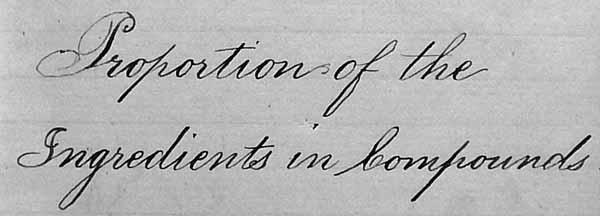 Proportion of the
Ingredients in Compounds.